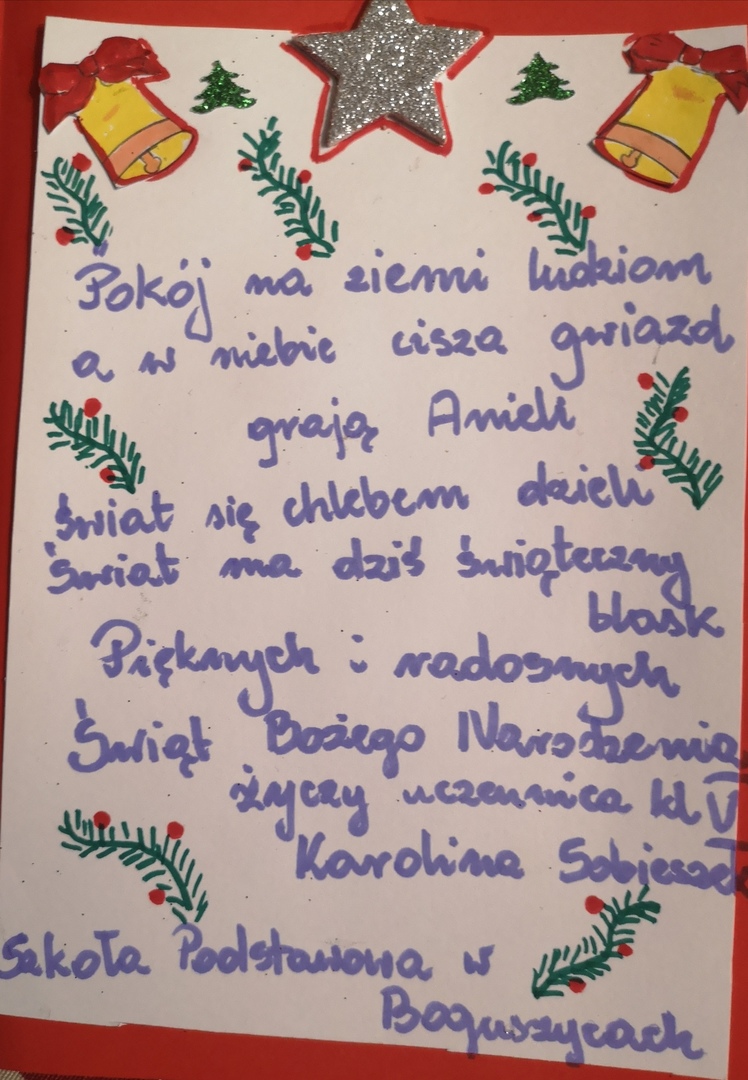 Pokój na ziemi ludziom
a w niebie cisza gwiazd
grają Anieli
świat się chlebem dzieli
Świat ma dziś świąteczny
blask
Pięknych i radosnych
Świąt Bożego Narodzenia
życzy uczennica kl V
Karolina
Szkoła Podstawowa w
Boguszycach